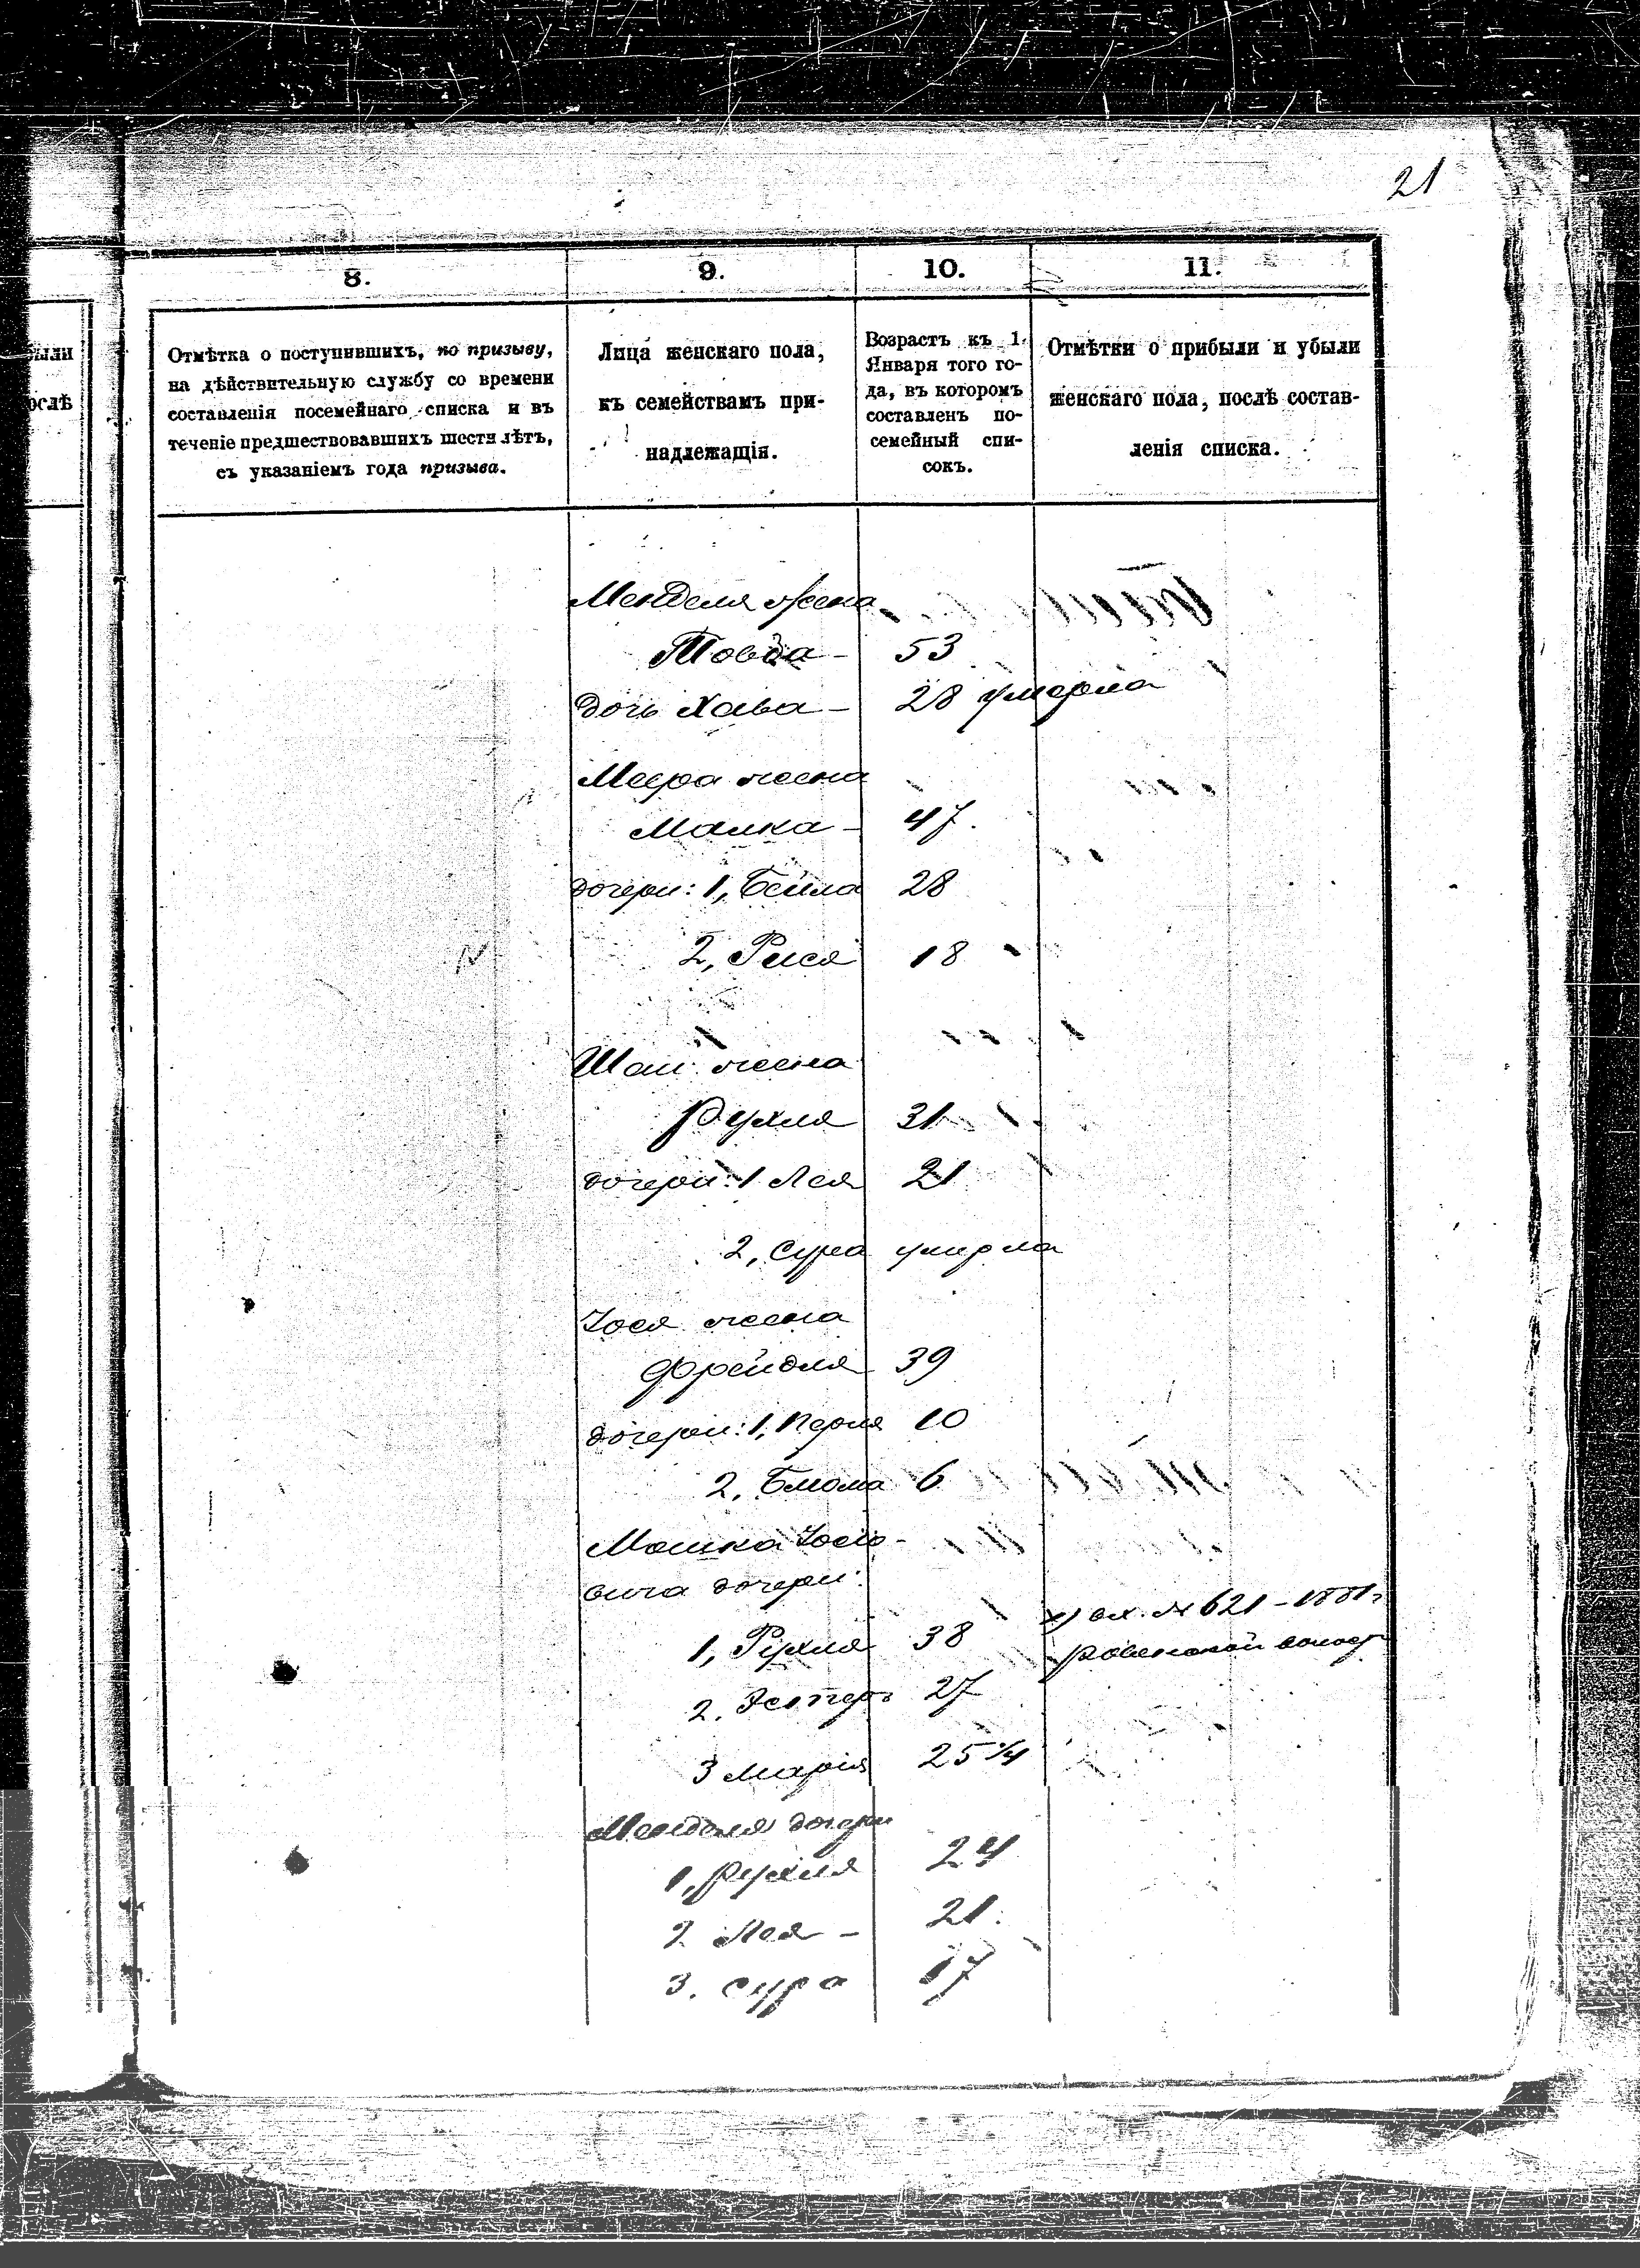 21
8.
9.
10.
11.
ыли
ослѣ
Отмѣтка о поступившихъ, по призыву,
на дѣйствительную службу со времени
составленія посемейнаго списка и въ
теченіе предшествовавшихъ шести лѣтъ,
съ указаніемъ года призыва.
Лица женскаго пола,
къ семействамъ при-
надлежащія.
Возрастъ къ 1.
Января того го-
да, въ которомъ
составленъ по-
семейный спи-
сокъ.
Отмѣтки о прибыли и убыли
женскаго пола, послѣ состав-
ленія списка.
Менделя жена
Товба - 53
дочь Хава - 28 умерла
Меера жена
Малка - 47.
дочери: 1, Бейла 28
2, Рися 18
Шаи жена
Рухля 31
дочери: 1 Лея 21
2, Сура умерла
Іося жена
Фрейдля 39
дочери: 1, Перля 10
2, Блюма 6
Мошка Іосіо-
вича дочери:
1, Рухля 38
х) вх. № 621 - 1881 г
2. Эстеръ 27
3 Марія 25 1/4
Менделя дочери
1, Рухля 24
2 Лея - 21.
3. Сура 17